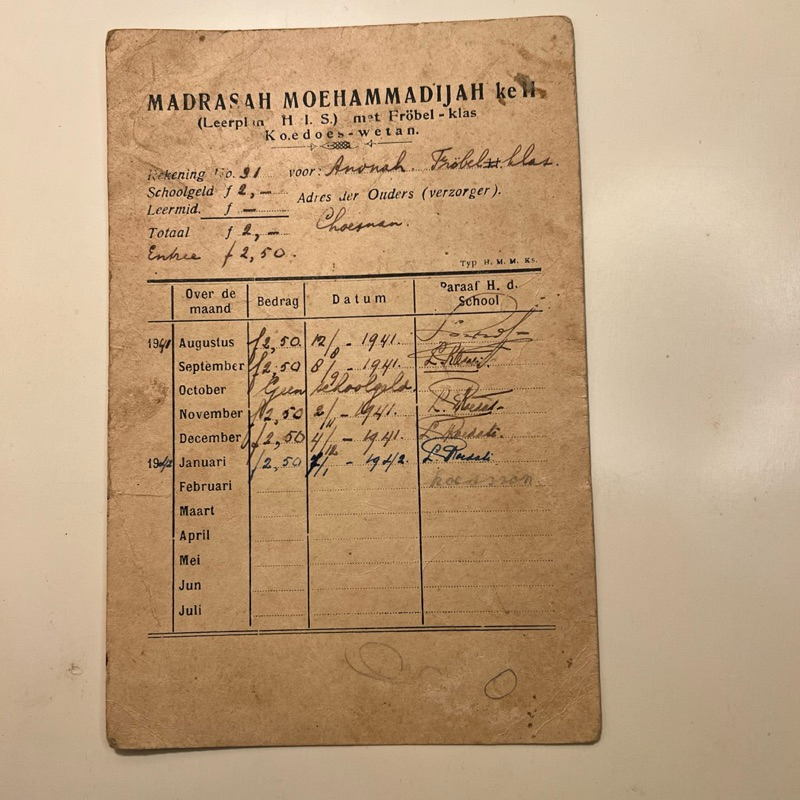 MADRASAH MOEHAMMADIJAH ke II
(Leerplan H. I. S.) met Fröbel-klas
Koedoes-wetan.
Rekening No. 91 voor: Anonah. Fröbel klas.
Schoolgeld f 2,— Adres der Ouders (verzorger).
Leermid. f —
Totaal f 2,— Choesnan.
Entree f 2,50.
Typ H. M. M. Ks.
Over de maand Bedrag Datum Paraaf H. d. School
1941 Augustus f 2,50 12/8 - 1941.
September f 2,50 8/9 - 1941.
October Geen schoolgeld.
November f 2,50 2/11 - 1941.
December f 2,50 4/12 - 1941. L. Roesati.
1942 Januari f 2,50 7/1 - 1942. L. Roesati
Februari
Maart
April
Mei
Jun
Juli